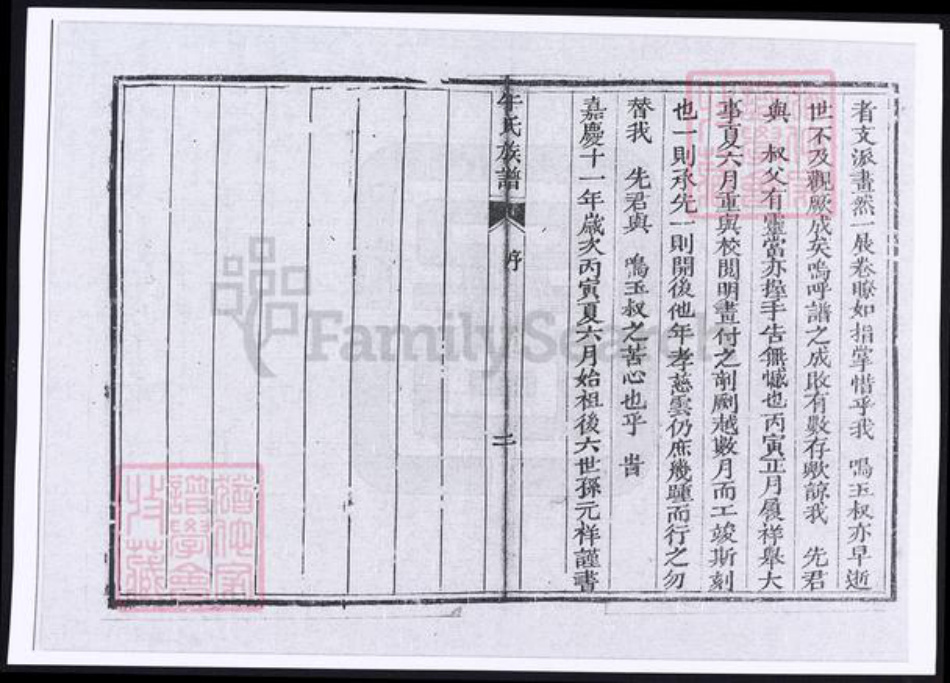 者支派畫然一展卷瞭如指掌惜乎我　鳴玉叔亦早逝
世不及觀厥成矣嗚呼譜之成敗有數存歟諒我　先君
與　叔父有靈當亦握手告無憾也丙寅正月履祥舉大
事夏六月重與校閱明晝付之剞劂越數月而工竣斯刻
也一則承先一則開後他年孝慈雲仍庶幾踵而行之勿
替我　先君與　鳴玉叔之苦心也乎　旹
嘉慶十一年歲次丙寅夏六月始祖後六世孫元祥謹書
牛氏族譜　序　二
FamilySearch